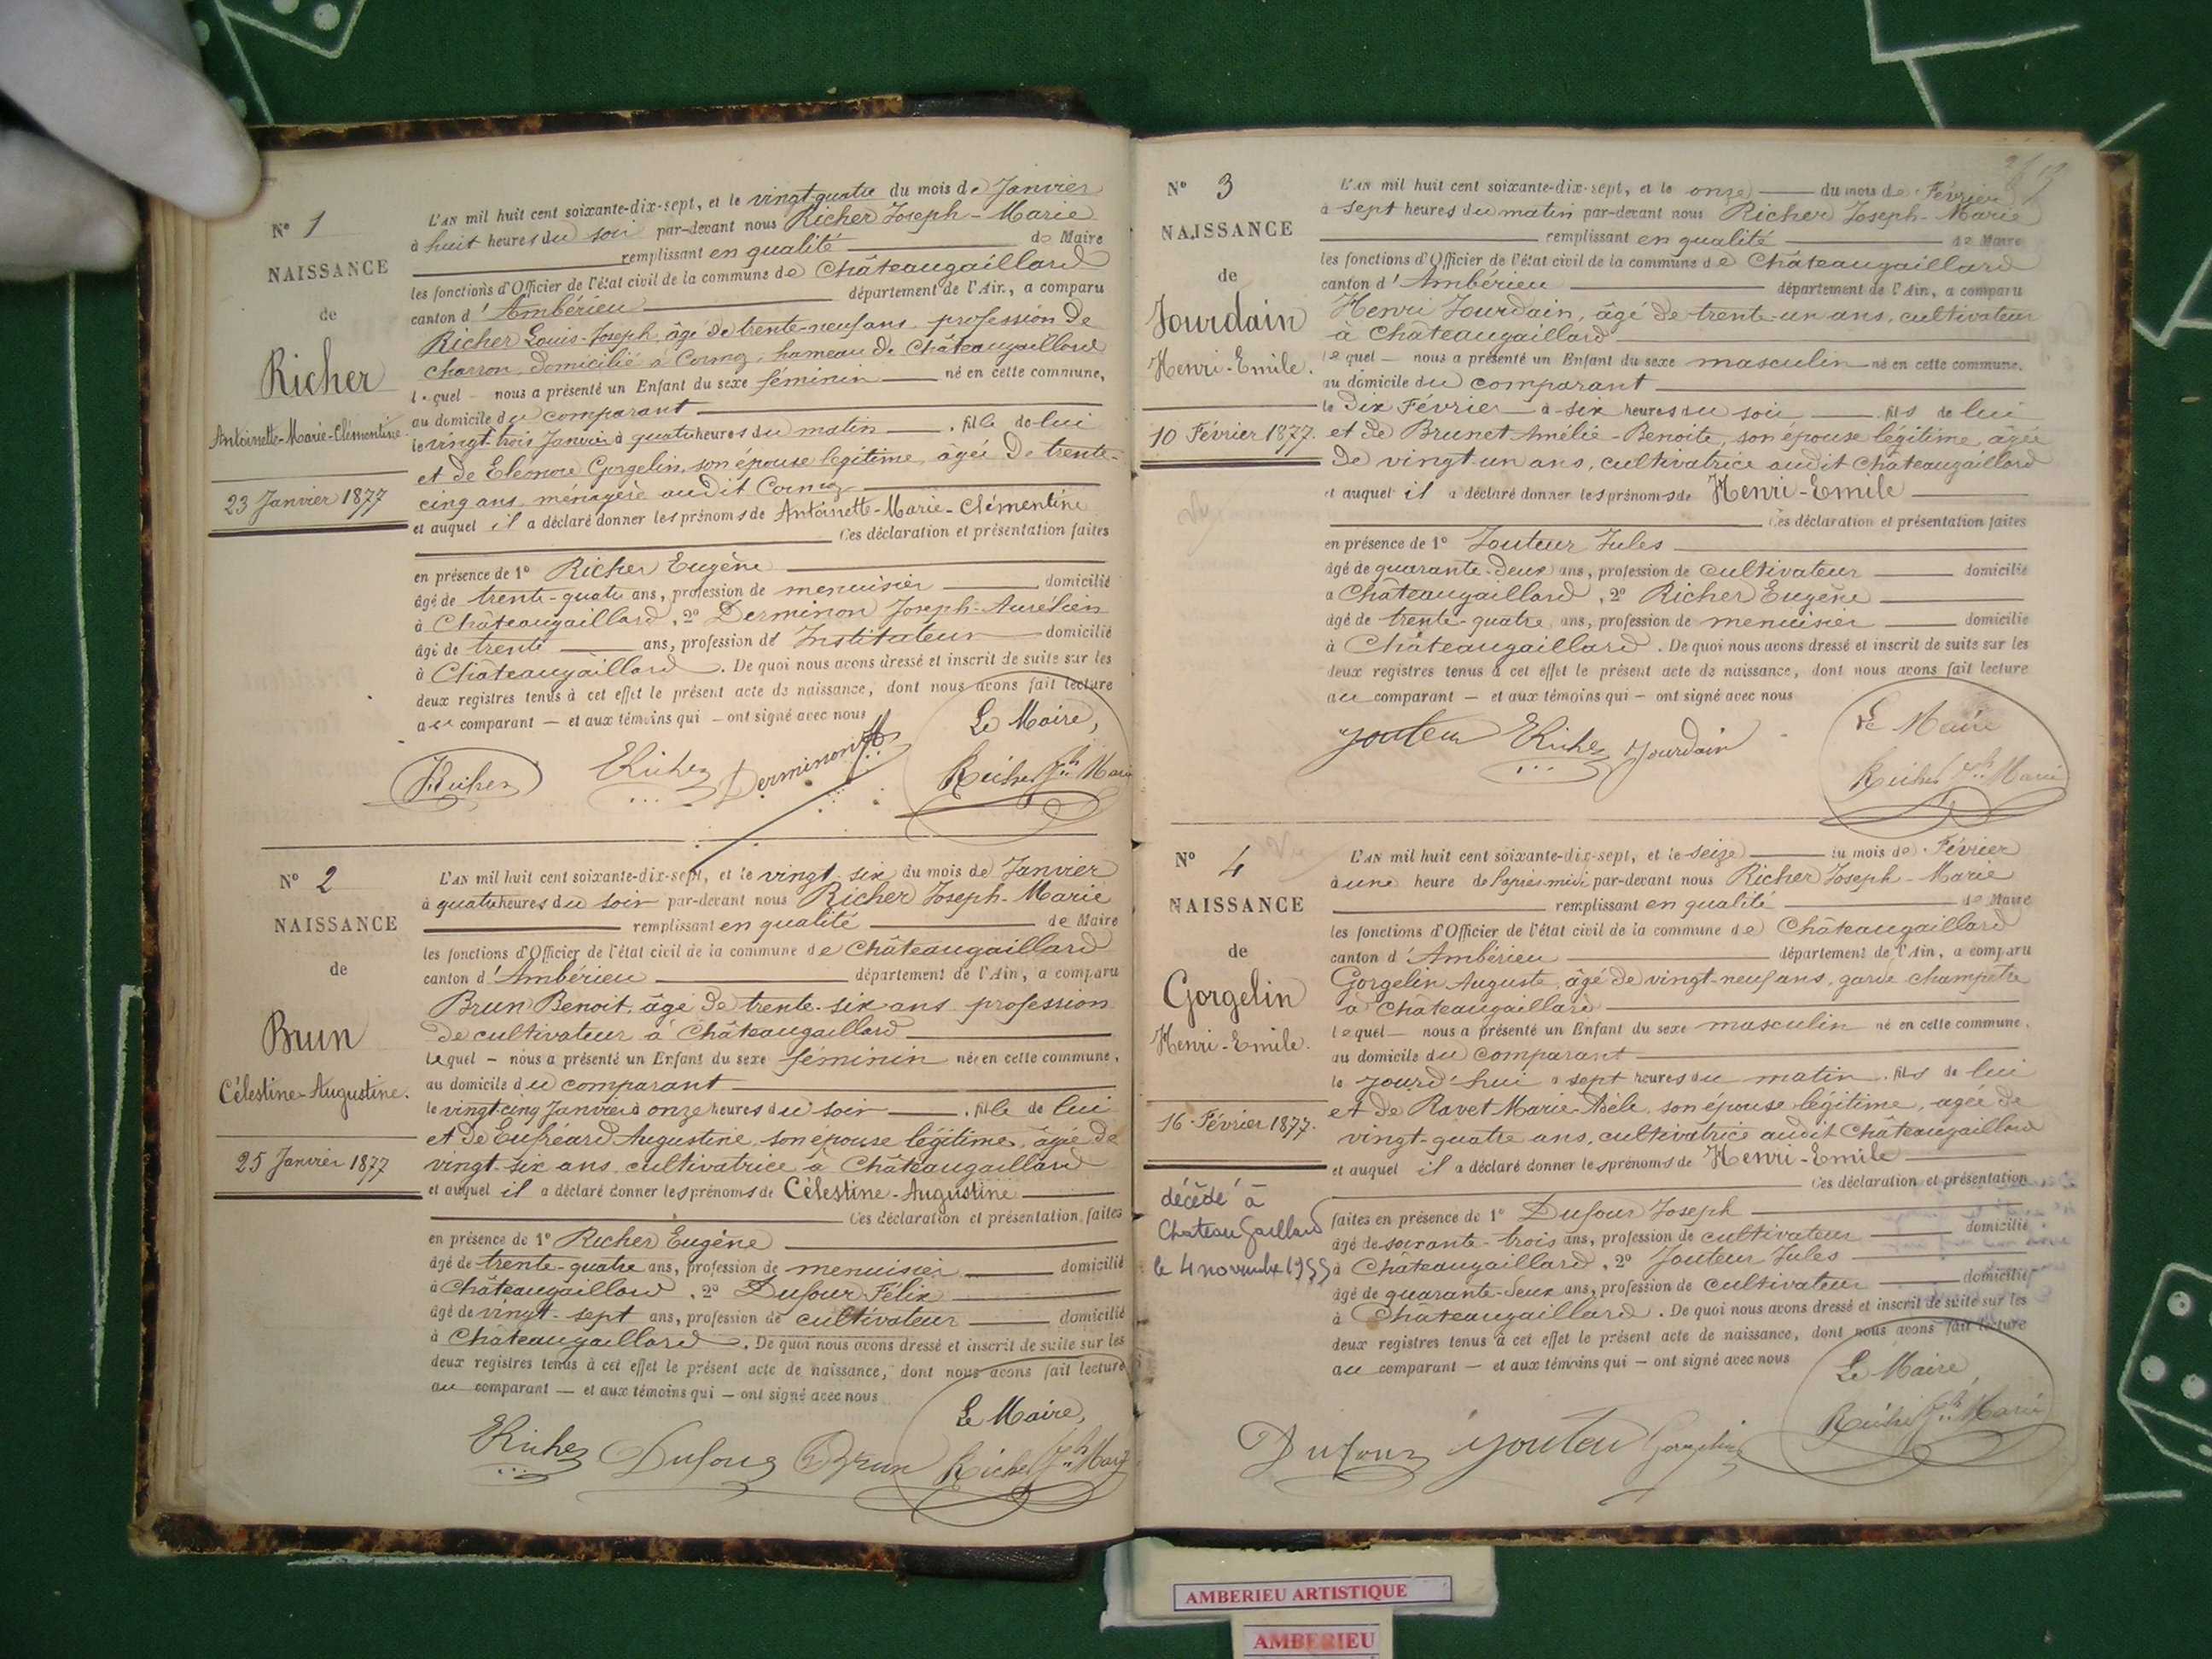 N° 1
NAISSANCE
de
Richer
Antoinette-Marie-Clémentine
23 Janvier 1877
L'AN mil huit cent soixante-dix-sept, et le vingt-quatre du mois de Janvier
à huit heures du soir par-devant nous Richer Joseph-Marie
remplissant en qualité de Maire
les fonctions d'Officier de l'état civil de la commune de Châteaugaillard
canton d'Ambérieu département de l'Ain, a comparu
Richer Louis-Joseph, âgé de trente-neuf ans, profession de
charron, domicilié à Cormoz, hameau de Châteaugaillard
lequel nous a présenté un Enfant du sexe féminin né en cette commune,
au domicile du comparant
le vingt-trois Janvier à quatre heures du matin, fille de lui
et de Eléonore Gorgelin, son épouse légitime, âgée de trente-
cinq ans, ménagère audit Cormoz
et auquel il a déclaré donner les prénoms de Antoinette-Marie-Clémentine
Ces déclaration et présentation faites
en présence de 1° Richer Eugène
âgé de trente-quatre ans, profession de menuisier domicilié
à Châteaugaillard, 2° Derminon Joseph-Aurélien
âgé de trente ans, profession de Instituteur domicilié
à Châteaugaillard. De quoi nous avons dressé et inscrit de suite sur les
deux registres tenus à cet effet le présent acte de naissance, dont nous avons fait lecture
au comparant — et aux témoins qui — ont signé avec nous
Le Maire,
Richer ERicher Derminon Richer Jph Marie
N° 2
NAISSANCE
de
Brun
Célestine-Augustine.
25 Janvier 1877
L'AN mil huit cent soixante-dix-sept, et le vingt-six du mois de Janvier
à quatre heures du soir par-devant nous Richer Joseph-Marie
remplissant en qualité de Maire
les fonctions d'Officier de l'état civil de la commune de Châteaugaillard
canton d'Ambérieu département de l'Ain, a comparu
Brun Benoit, âgé de trente-six ans, profession
de cultivateur à Châteaugaillard
lequel — nous a présenté un Enfant du sexe féminin née en cette commune,
au domicile du comparant
le vingt-cinq Janvier à onze heures du soir, fille de lui
et de Augustine, son épouse légitime, âgée de
vingt-six ans, cultivatrice à Châteaugaillard
et auquel il a déclaré donner les prénoms de Célestine-Augustine
Ces déclaration et présentation faites
en présence de 1° Richer Eugène
âgé de trente-quatre ans, profession de menuisier domicilié
à Châteaugaillard, 2° Dufour Félix
âgé de vingt-sept ans, profession de cultivateur domicilié
à Châteaugaillard. De quoi nous avons dressé et inscrit de suite sur les
deux registres tenus à cet effet le présent acte de naissance, dont nous avons fait lecture
au comparant — et aux témoins qui — ont signé avec nous
Le Maire,
ERicher Dufour Brun Richer Jph Marie
N° 3
NAISSANCE
de
Jourdain
Henri-Emile.
10 Février 1877.
L'AN mil huit cent soixante-dix-sept, et le onze du mois de Février
à sept heures du matin par-devant nous Richer Joseph-Marie
remplissant en qualité de Maire
les fonctions d'Officier de l'état civil de la commune de Châteaugaillard
canton d'Ambérieu département de l'Ain, a comparu
Henri Jourdain, âgé de trente-un ans, cultivateur
à Châteaugaillard
lequel — nous a présenté un Enfant du sexe masculin né en cette commune.
au domicile du comparant
le Dix Février à six heures du soir, fils de lui
et de Brunet Amélie-Benoite, son épouse légitime, âgée
de vingt-un ans, cultivatrice audit Châteaugaillard
et auquel il a déclaré donner les prénoms de Henri-Emile
Ces déclaration et présentation faites
en présence de 1° Jouteur Jules
âgé de quarante-deux ans, profession de cultivateur domicilié
à Châteaugaillard, 2° Richer Eugène
âgé de trente-quatre ans, profession de menuisier domicilié
à Châteaugaillard. De quoi nous avons dressé et inscrit de suite sur les
deux registres tenus à cet effet le présent acte de naissance, dont nous avons fait lecture
au comparant — et aux témoins qui — ont signé avec nous
Le Maire
Jouteur ERicher Jourdain Richer Jph Marie
N° 4
NAISSANCE
de
Gorgelin
Henri-Emile.
16 Février 1877.
décédé à
Chateau Gaillard
le 4 novembre 1955
L'AN mil huit cent soixante-dix-sept, et le seize du mois de Février
à une heure de l'après-midi par-devant nous Richer Joseph-Marie
remplissant en qualité de Maire
les fonctions d'Officier de l'état civil de la commune de Châteaugaillard
canton d'Ambérieu département de l'Ain, a comparu
Gorgelin Auguste, âgé de vingt-neuf ans, garde champêtre
à Châteaugaillard
lequel — nous a présenté un Enfant du sexe masculin né en cette commune,
au domicile du comparant
le jourd'hui à sept heures du matin, fils de lui
et de Ravet Marie-Adèle, son épouse légitime, âgée de
vingt-quatre ans, cultivatrice audit Châteaugaillard
et auquel il a déclaré donner les prénoms de Henri-Emile
Ces déclaration et présentation
faites en présence de 1° Dufour Joseph
âgé de soixante-trois ans, profession de cultivateur domicilié
à Châteaugaillard, 2° Jouteur Jules
âgé de quarante-deux ans, profession de cultivateur domicilié
à Châteaugaillard. De quoi nous avons dressé et inscrit de suite sur les
deux registres tenus à cet effet le présent acte de naissance, dont nous avons fait lecture
au comparant — et aux témoins qui — ont signé avec nous
Le Maire,
Dufour Jouteur Gorgelin Richer Jph Marie
AMBERIEU ARTISTIQUE
AMBERIEU